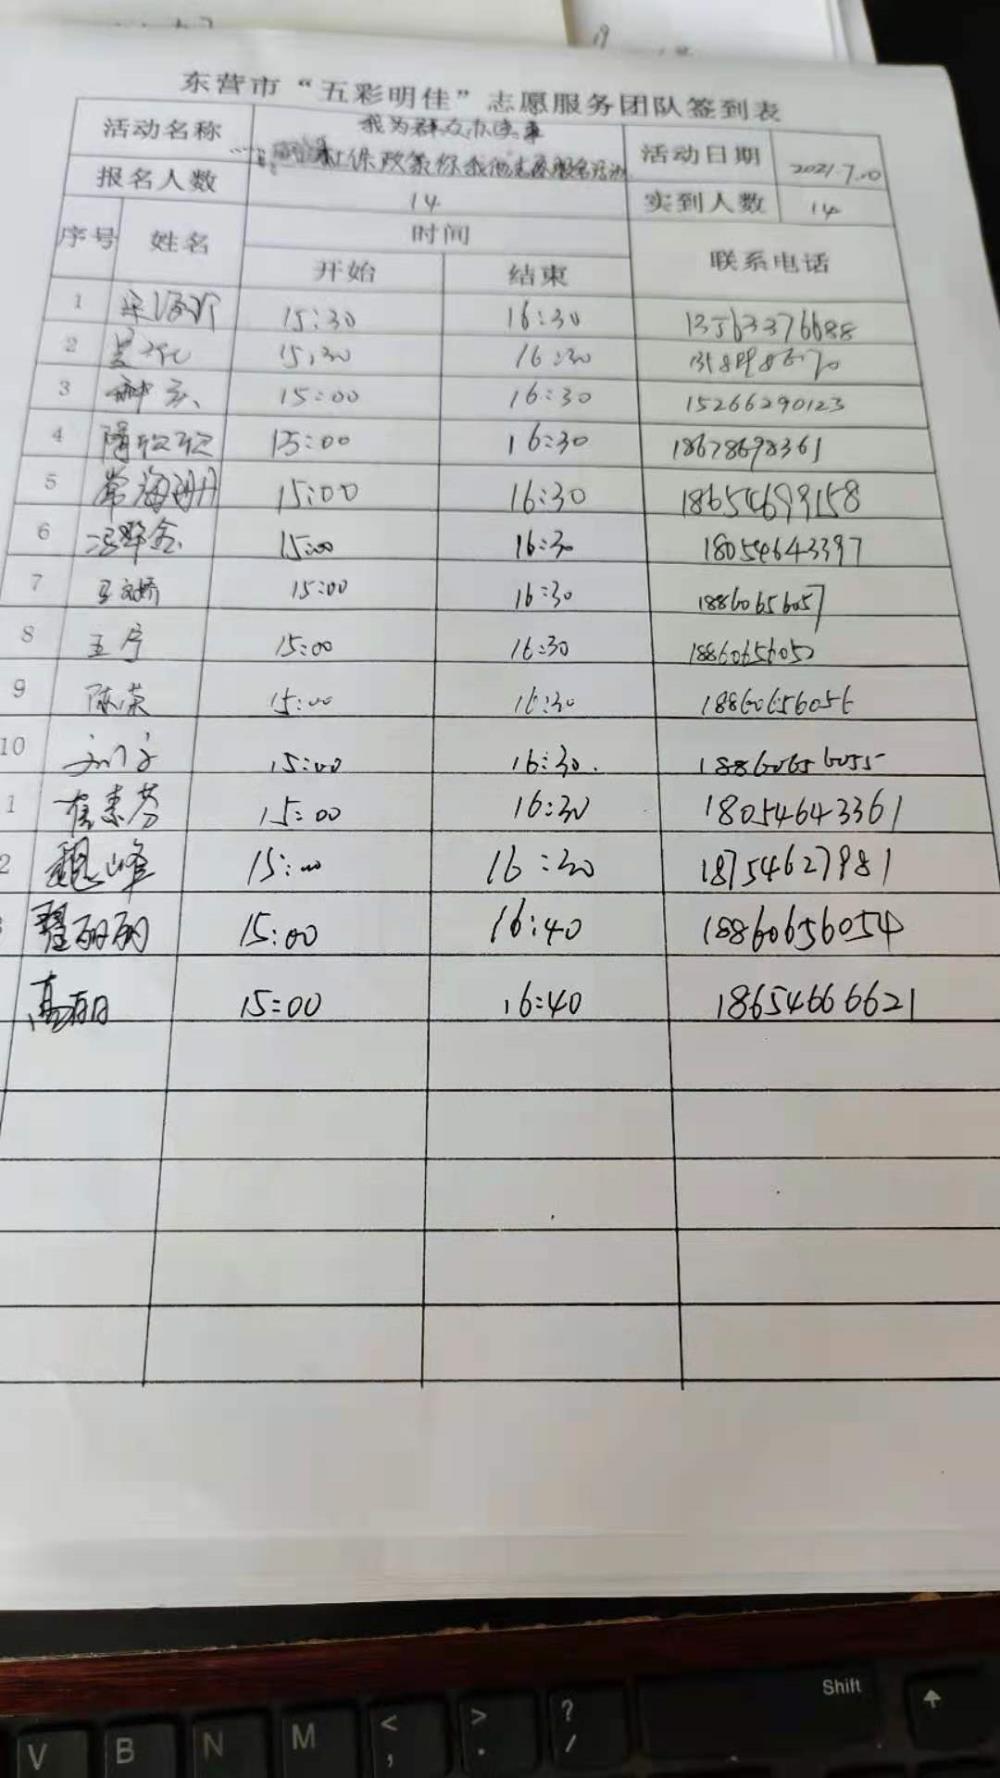 东营市“五彩明佳”志愿服务团队签到表
活动名称 我为群众办实事 活动日期 2021.7.10
社保政策你我他志愿服务活动
报名人数 14 实到人数 14
序号 姓名 时间 联系电话
开始 结束
1 15:30 16:30 13563376688
2 15:30 16:30
3 15:00 16:30 15266290123
4 隋欢欢 15:00 16:30 18678698361
5 常海珊 15:00 16:30 18654699158
6 15:00 16:30 18054643397
7 王文娇 15:00 16:30 18860656057
8 王宁 15:00 16:30 18860656052
9 陈荣 15:00 16:30 18860656056
10 15:00 16:30. 18860656055
1 崔素芬 15:00 16:30 18054643361
2 魏峰 15:00 16:30 18754627981
翟丽丽 15:00 16:40 18860656054
高丽 15:00 16:40 18654666621
Shift
V B N M < , > . ? /